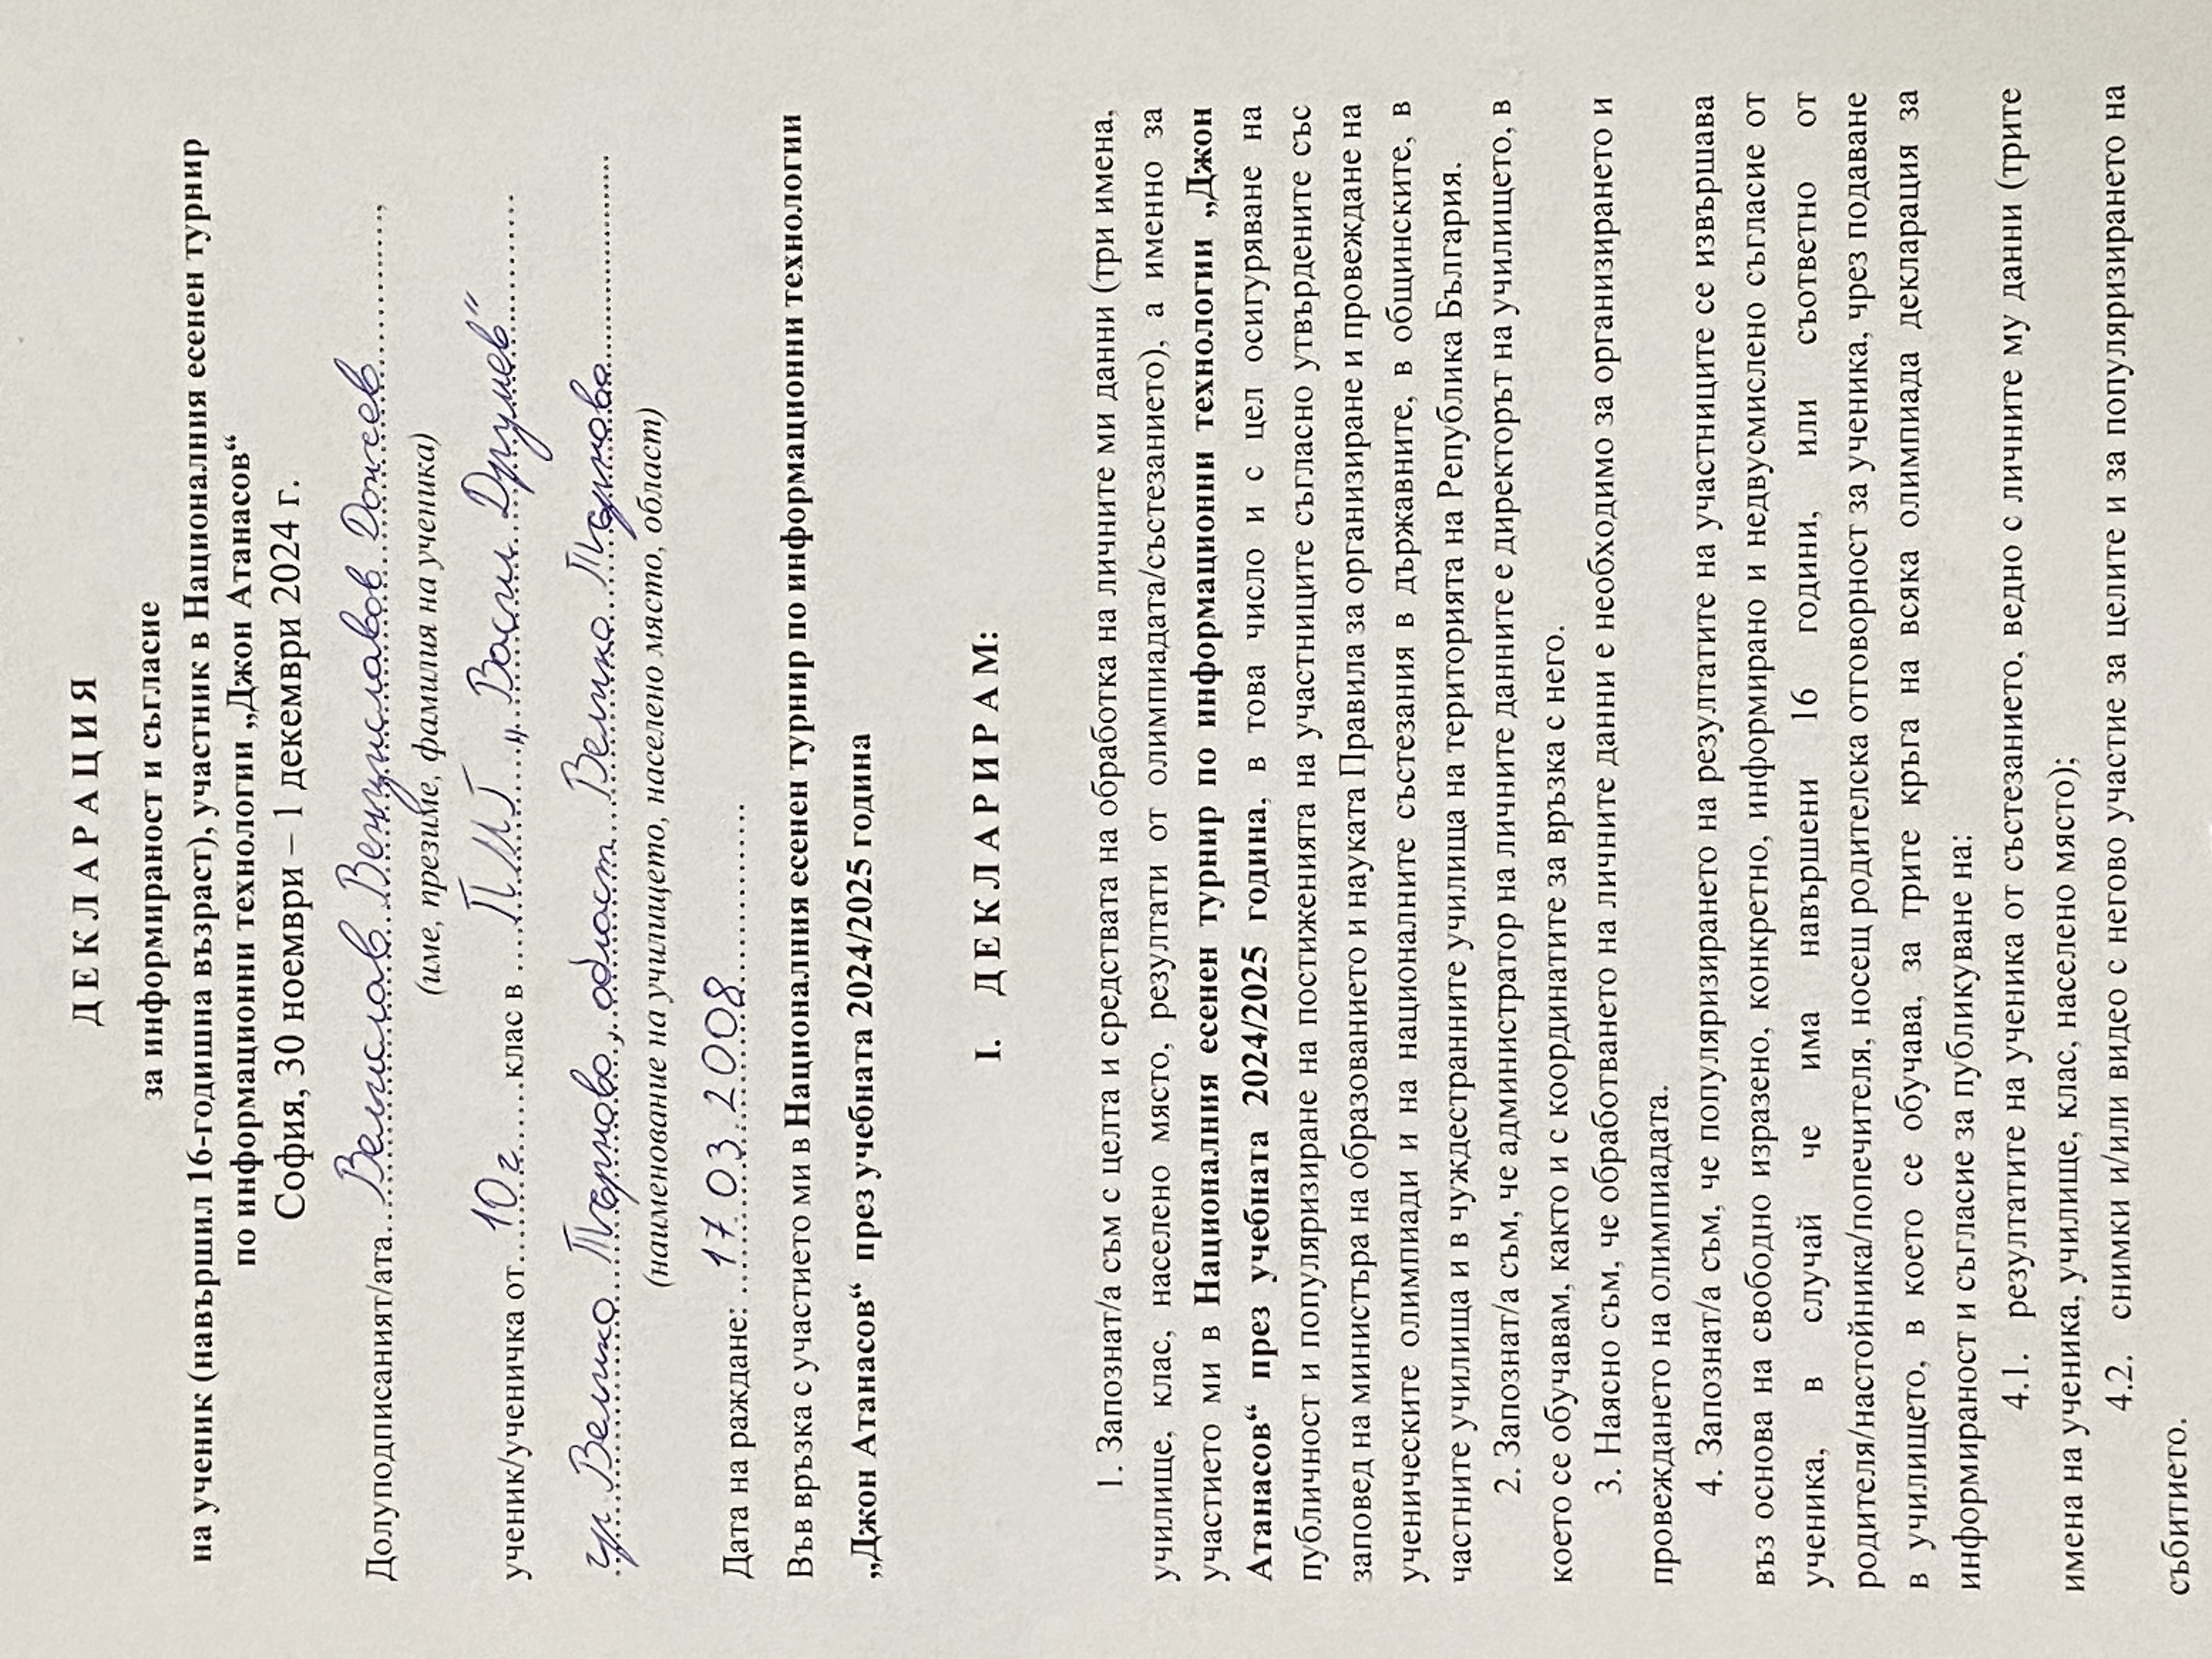 Д Е К Л А Р А Ц И Я
за информираност и съгласие
на ученик (навършил 16-годишна възраст), участник в Националния есенен турнир
по информационни технологии „Джон Атанасов“
София, 30 ноември – 1 декември 2024 г.
Долуподписаният/ата...Велислав Венциславов Дончев...,
(име, презиме, фамилия на ученика)
ученик/ученичка от...10г...клас в ...ПМГ „Васил Друмев“...
гр. Велико Търново, област Велико Търново...
(наименование на училището, населено място, област)
Дата на раждане: ...17.03.2008...
Във връзка с участието ми в Националния есенен турнир по информационни технологии
„Джон Атанасов“ през учебната 2024/2025 година
I. Д Е К Л А Р И Р А М:
1. Запознат/а съм с целта и средствата на обработка на личните ми данни (три имена,
училище, клас, населено място, резултати от олимпиадата/състезанието), а именно за
участието ми в Националния есенен турнир по информационни технологии „Джон
Атанасов“ през учебната 2024/2025 година, в това число и с цел осигуряване на
публичност и популяризиране на постиженията на участниците съгласно утвърдените със
заповед на министъра на образованието и науката Правила за организиране и провеждане на
ученическите олимпиади и на националните състезания в държавните, в общинските, в
частните училища и в чуждестранните училища на територията на Република България.
2. Запознат/а съм, че администратор на личните данните е директорът на училището, в
което се обучавам, както и с координатите за връзка с него.
3. Наясно съм, че обработването на личните данни е необходимо за организирането и
провеждането на олимпиадата.
4. Запознат/а съм, че популяризирането на резултатите на участниците се извършава
въз основа на свободно изразено, конкретно, информирано и недвусмислено съгласие от
ученика, в случай че има навършени 16 години, или съответно от
родителя/настойника/попечителя, носещ родителска отговорност за ученика, чрез подаване
в училището, в което се обучава, за трите кръга на всяка олимпиада декларация за
информираност и съгласие за публикуване на:
4.1. резултатите на ученика от състезанието, ведно с личните му данни (трите
имена на ученика, училище, клас, населено място);
4.2. снимки и/или видео с негово участие за целите и за популяризирането на
събитието.